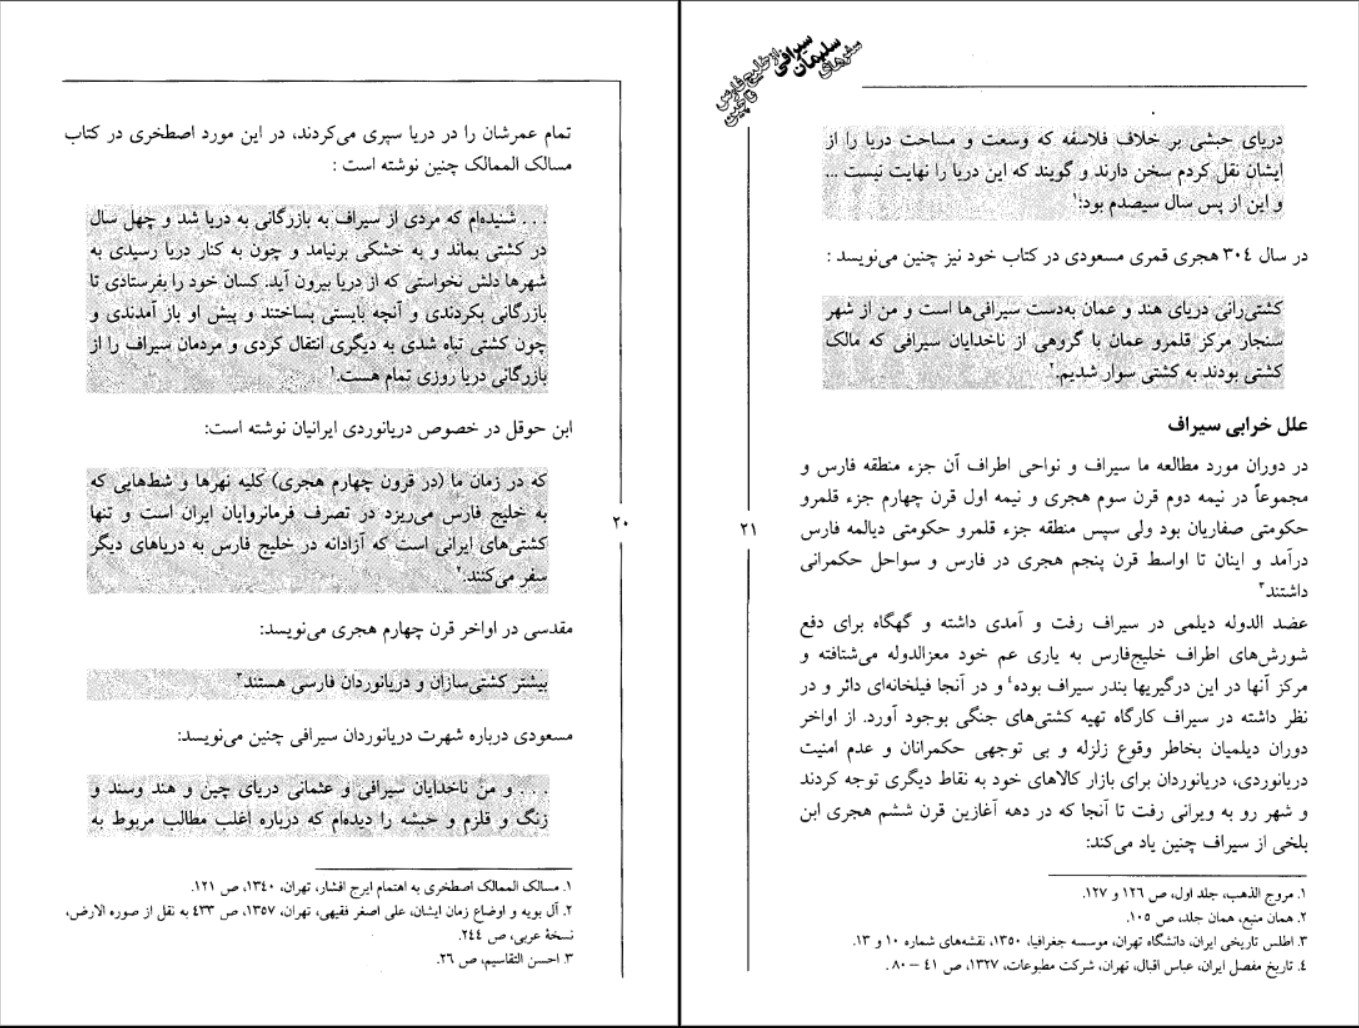 تمام عمرشان را در دریا سپری می‌کردند، در این مورد اصطخری در کتاب
مسالک الممالک چنین نوشته است :
. . . شنیده‌ام که مردی از سیراف به بازرگانی به دریا شد و چهل سال
در کشتی بماند و به خشکی برنیامد و چون به کنار دریا رسیدی به
شهرها دلش نخواستی که از دریا بیرون آید. کسان خود را بفرستادی تا
بازرگانی بکردندی و آنچه بایستی بساختند و پیش او باز آمدندی و
چون کشتی تباه شدی به دیگری انتقال کردی و مردمان سیراف را از
بازرگانی دریا روزی تمام هست.۱
ابن حوقل در خصوص دریانوردی ایرانیان نوشته است:
که در زمان ما (در قرون چهارم هجری) کلیه نهرها و شط‌هایی که
به خلیج فارس می‌ریزد در تصرف فرمانروایان ایران است و تنها
کشتی‌های ایرانی است که آزادانه در خلیج فارس به دریاهای دیگر
سفر می‌کنند.۲
مقدسی در اواخر قرن چهارم هجری می‌نویسد:
بیشتر کشتی‌سازان و دریانوردان فارسی هستند۳
مسعودی درباره شهرت دریانوردان سیرافی چنین می‌نویسد:
. . . و من ناخدایان سیرافی و عثمانی دریای چین و هند وسند و
زنگ و قلزم و حبشه را دیده‌ام که درباره اغلب مطالب مربوط به
۱. مسالک الممالک اصطخری به اهتمام ایرج افشار، تهران، ۱۳٤۰، ص ۱۲۱.
۲. آل بویه و اوضاع زمان ایشان، علی اصغر فقیهی، تهران، ۱۳۵۷، ص ٤۳۳ به نقل از صوره الارض،
نسخهٔ عربی، ص ۲٤٤.
۳. احسن التقاسیم، ص ۲٦.
۲۰
سفرهای
سلیمان
سیرافی
از خلیج فارس
تا چین
دریای حبشی بر خلاف فلاسفه که وسعت و مساحت دریا را از
ایشان نقل کردم سخن دارند و گویند که این دریا را نهایت نیست ...
و این از پس سال سیصدم بود؛۱
در سال ۳۰٤ هجری قمری مسعودی در کتاب خود نیز چنین می‌نویسد :
کشتی‌رانی دریای هند و عمان به‌دست سیرافی‌ها است و من از شهر
سنجار مرکز قلمرو عمان با گروهی از ناخدایان سیرافی که مالک
کشتی بودند به کشتی سوار شدیم.۲
علل خرابی سیراف
در دوران مورد مطالعه ما سیراف و نواحی اطراف آن جزء منطقه فارس و
مجموعاً در نیمه دوم قرن سوم هجری و نیمه اول قرن چهارم جزء قلمرو
حکومتی صفاریان بود ولی سپس منطقه جزء قلمرو حکومتی دیالمه فارس
درآمد و اینان تا اواسط قرن پنجم هجری در فارس و سواحل حکمرانی
داشتند۳
عضد الدوله دیلمی در سیراف رفت و آمدی داشته و گهگاه برای دفع
شورش‌های اطراف خلیج‌فارس به یاری عم خود معزالدوله می‌شتافته و
مرکز آنها در این درگیریها بندر سیراف بوده٤ و در آنجا فیلخانه‌ای دائر و در
نظر داشته در سیراف کارگاه تهیه کشتی‌های جنگی بوجود آورد. از اواخر
دوران دیلمیان بخاطر وقوع زلزله و بی توجهی حکمرانان و عدم امنیت
دریانوردی، دریانوردان برای بازار کالاهای خود به نقاط دیگری توجه کردند
و شهر رو به ویرانی رفت تا آنجا که در دهه آغازین قرن ششم هجری ابن
بلخی از سیراف چنین یاد می‌کند:
۱. مروج الذهب، جلد اول، ص ۱۲٦ و ۱۲۷.
۲. همان منبع، همان جلد، ص ۱۰۵.
۳. اطلس تاریخی ایران، دانشگاه تهران، موسسه جغرافیا، ۱۳۵۰، نقشه‌های شماره ۱۰ و ۱۳.
٤. تاریخ مفصل ایران، عباس اقبال، تهران، شرکت مطبوعات، ۱۳۲۷، ص ٤۱ – ۸۰ .
۲۱